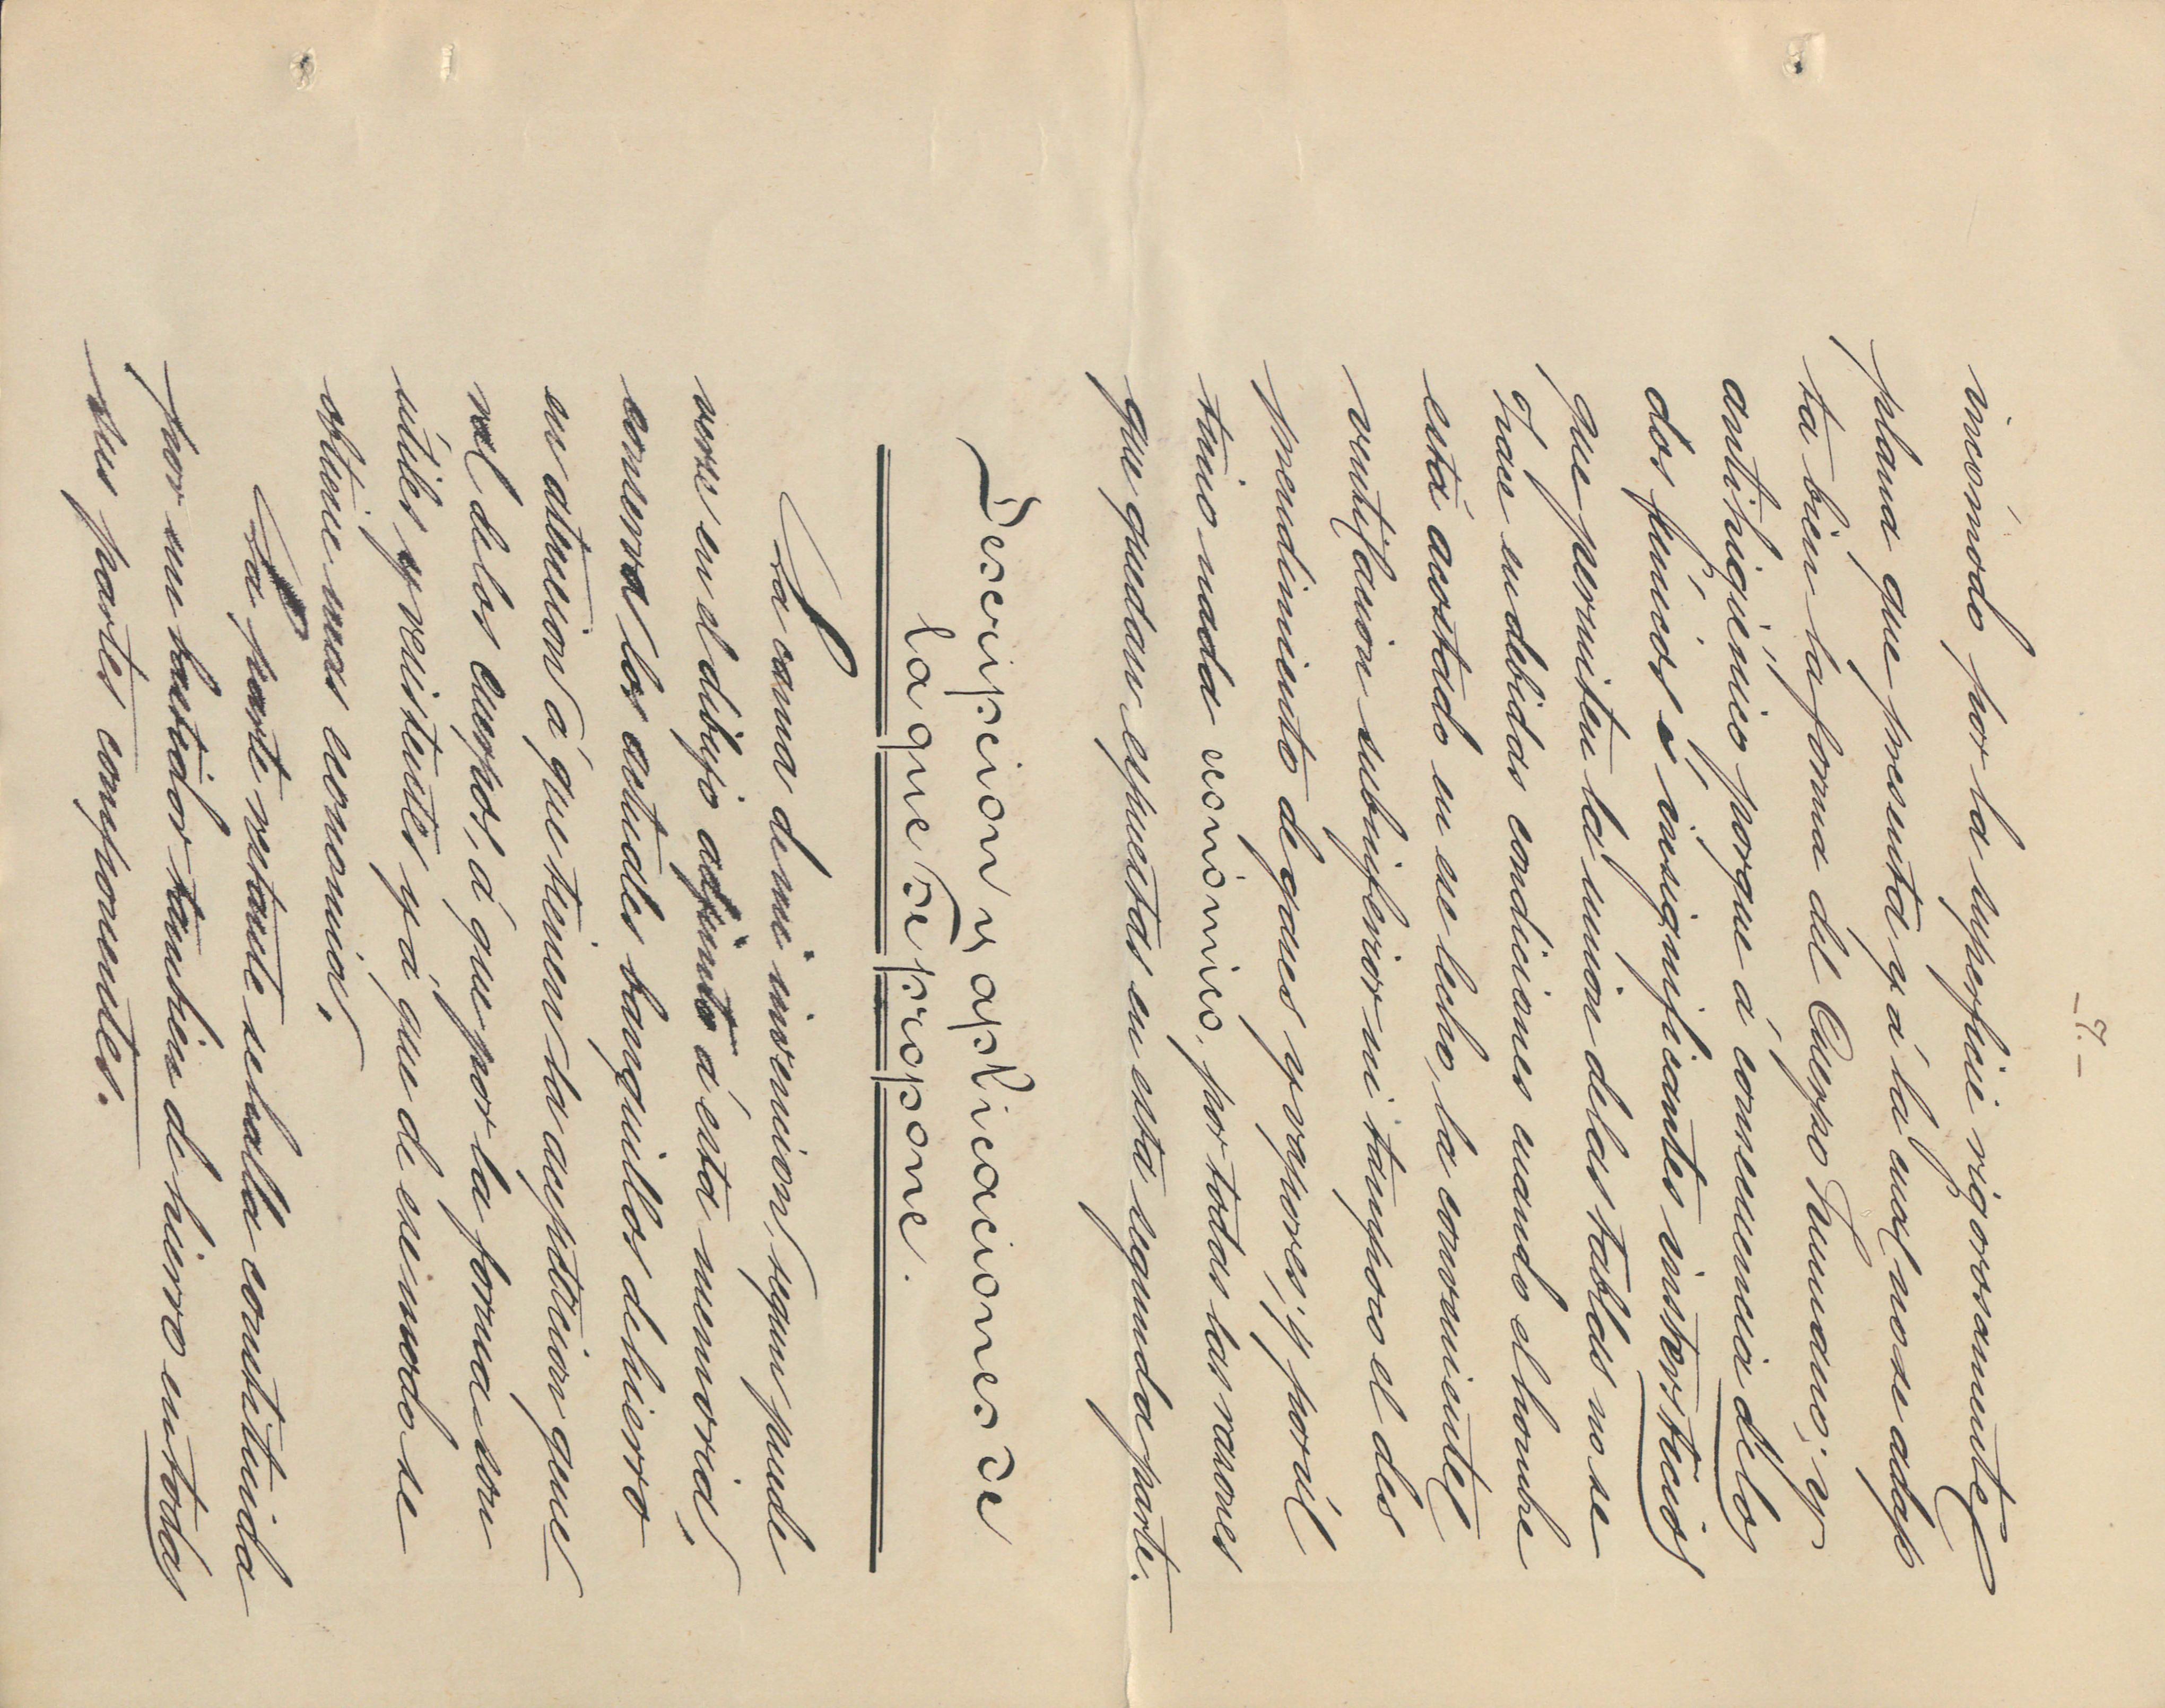 -7.-
incómodo por la superficie rigorosamente
plana que presenta y á la cual no se adap
ta bien la forma del Cuerpo Humano; y
antihigiénico porque á consecuencia de los
dos fúnicos é insignificantes insterticios
que permiten la union de las tablas no se
trae en debidas condiciones cuando el hombre
está acostado en ese lecho, la conveniente
ventilacion subinferior ni tampoco el des
prendimiento de gases y vapores; y por úl
timo nada económico, por todas las razones
que quedan espuestas en esta segunda parte.
Descripcion y aplicaciones de
la que se propone.
La cama de mi invencion, segun puede
verse en el dibujo adjunto á esta memoria,
conserva los actuales banquillos de hierro
en atencion á que tienen la aceptacion gene
ral de los cuerpos, á que por la forma son
útiles y resistentes y á que de ese modo se
obtiene mas economia.
La parte restante se halla constituida
por un bastidor tambien de hierro en todas
sus partes componentes.